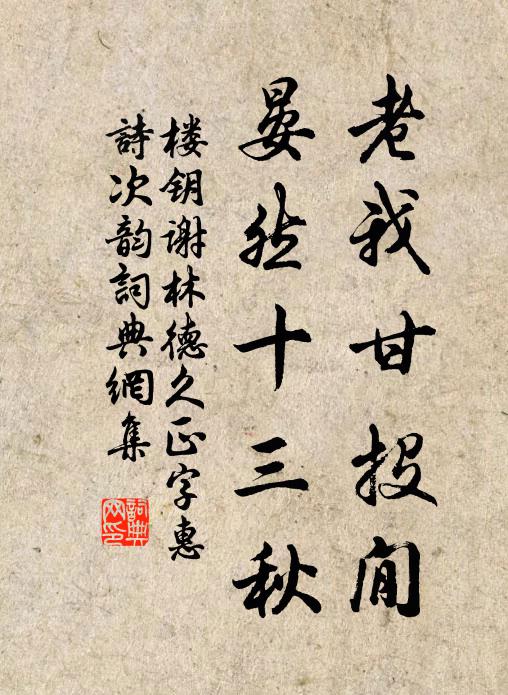 老我甘投閒
晏然十三秋
楼钥谢林德久正字惠
詩次韵詞典網集
詞典网印